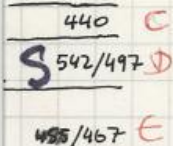 440 C
S 542/497 D
455/467 E